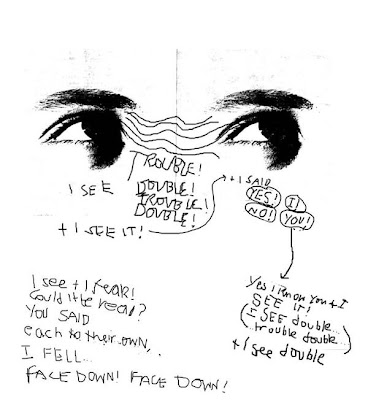 I SEE
TROUBLE!
DOUBLE!
TROUBLE!
DOUBLE!
+ I SEE IT!
+ I SAID
YES! I
NO! YOU!
I see + I fear!
Could it be real?
YOU SAID
each to their own,
I FELL...
FACE DOWN! FACE DOWN!
Yes I know you + I
SEE IT!
(I SEE double...
trouble double...)
+ I see double